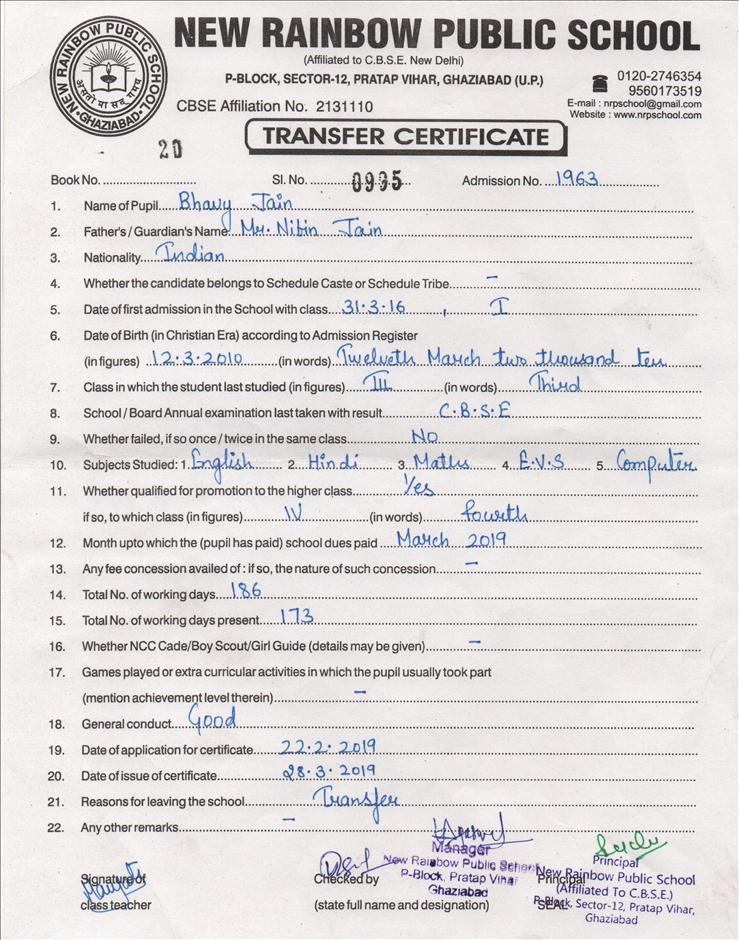 NEW RAINBOW PUBLIC SCHOOL
GHAZIABAD
असतो मा सद् गमय
NEW RAINBOW PUBLIC SCHOOL
(Affiliated to C.B.S.E. New Delhi)
P-BLOCK, SECTOR-12, PRATAP VIHAR, GHAZIABAD (U.P.)
CBSE Affiliation No. 2131110
0120-2746354
9560173519
E-mail : nrpschool@gmail.com
Website : www.nrpschool.com
TRANSFER CERTIFICATE
Book No. 20 Sl. No. 0935 Admission No. 1963
1. Name of Pupil Bhavy Jain
2. Father's / Guardian's Name Mr. Nitin Jain
3. Nationality Indian
4. Whether the candidate belongs to Schedule Caste or Schedule Tribe –
5. Date of first admission in the School with class 31.3.16 , I
6. Date of Birth (in Christian Era) according to Admission Register
(in figures) 12.3.2010 (in words) Twelveth March two thousand ten
7. Class in which the student last studied (in figures) III (in words) Third
8. School / Board Annual examination last taken with result C.B.S.E
9. Whether failed, if so once / twice in the same class No
10. Subjects Studied: 1. English 2. Hindi 3. Maths 4. E.V.S 5. Computer
11. Whether qualified for promotion to the higher class Yes
if so, to which class (in figures) IV (in words) fourth
12. Month upto which the (pupil has paid) school dues paid March 2019
13. Any fee concession availed of : if so, the nature of such concession –
14. Total No. of working days 186
15. Total No. of working days present 173
16. Whether NCC Cade/Boy Scout/Girl Guide (details may be given) –
17. Games played or extra curricular activities in which the pupil usually took part
(mention achievement level therein) –
18. General conduct Good
19. Date of application for certificate 22.2.2019
20. Date of issue of certificate 28.3.2019
21. Reasons for leaving the school Transfer
22. Any other remarks –
Signature of
class teacher
Checked by
(state full name and designation)
Manager
New Rainbow Public School
P-Block, Pratap Vihar
Ghaziabad
Principal
SEAL
Principal
New Rainbow Public School
(Affiliated To C.B.S.E.)
P-Block, Sector-12, Pratap Vihar,
Ghaziabad